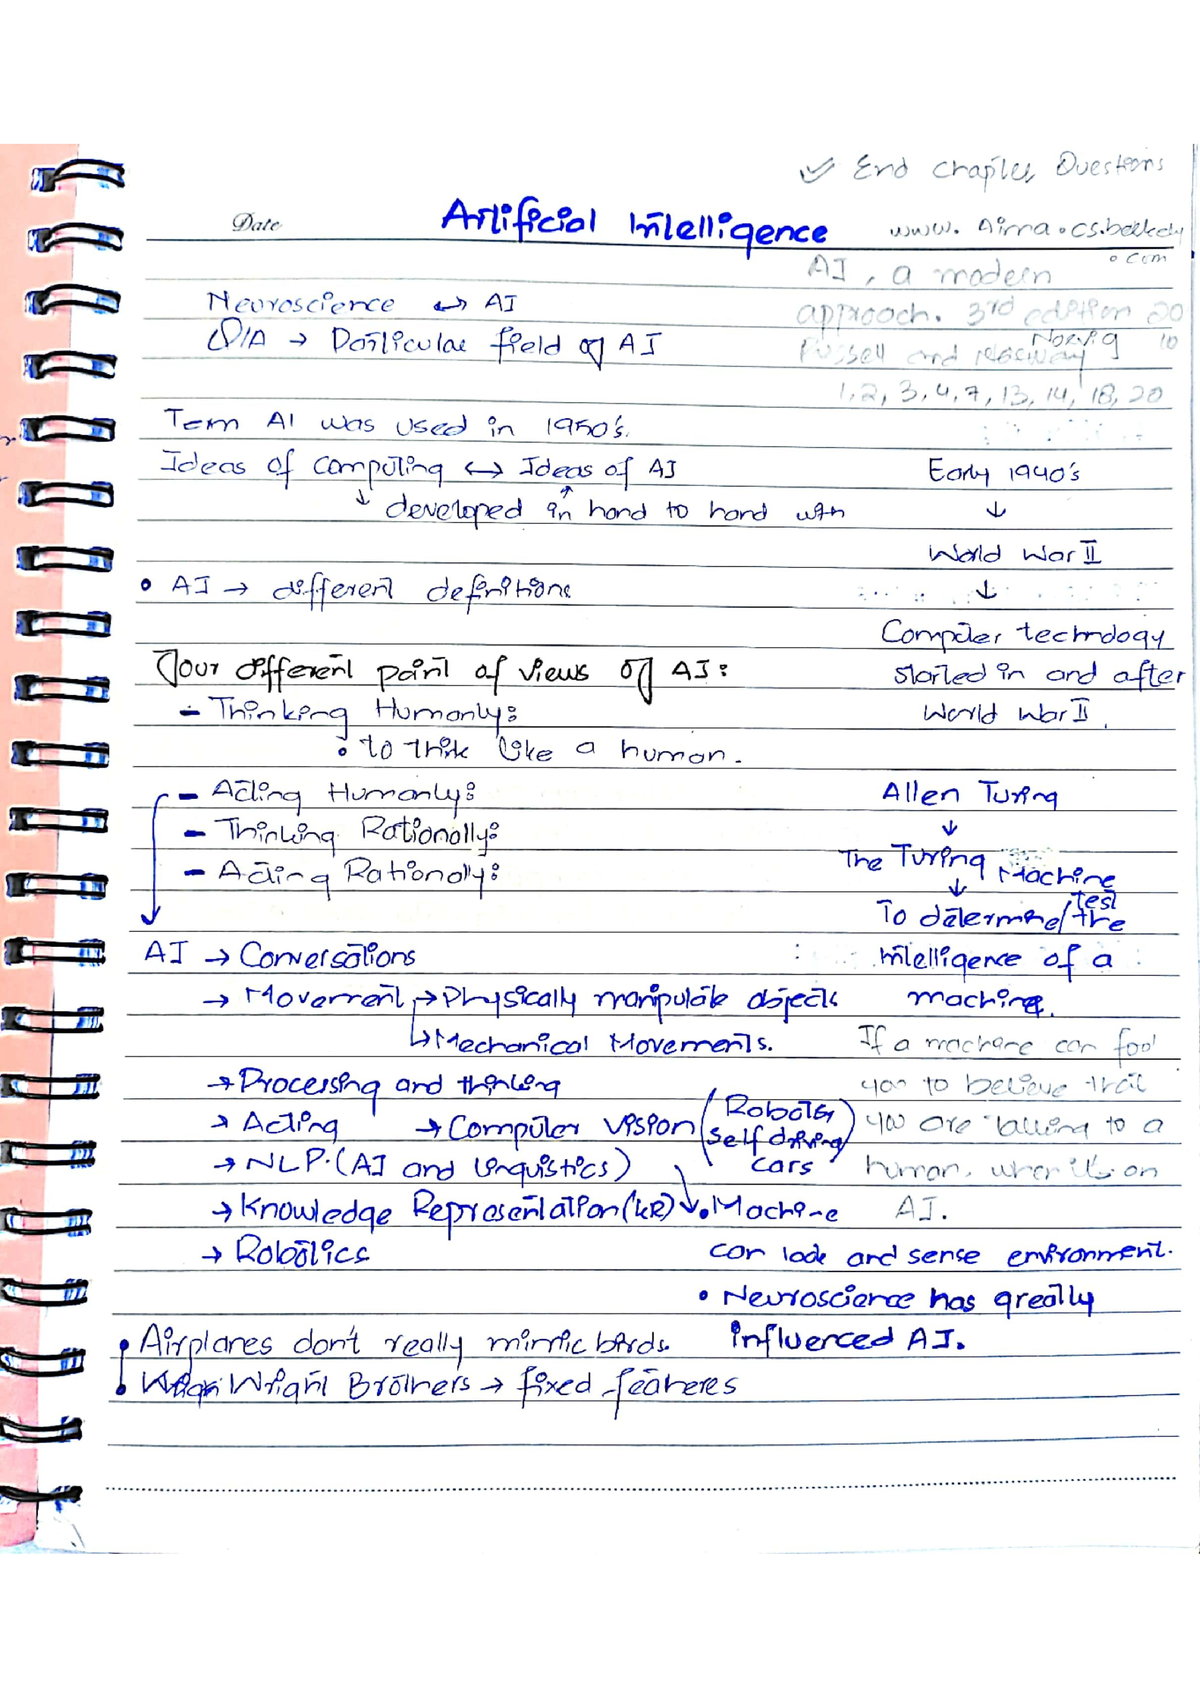 ✓ End Chapter Questions
Date
Artificial Intelligence
www. Aima.cs.berkeley
.com
AI, a modern
approach. 3rd edition 2010
Russell and Norvig
1, 2, 3, 4, 7, 13, 14, 18, 20
Neuroscience ↔ AI
→ Particular field of AI
Term AI was used in 1950's.
Ideas of Computing ↔ Ideas of AI
↓ developed in hand to hand with ↑
Early 1940's
↓
World War II
↓
Computer technology
started in and after
World War II.
• AI → different definitions
Four different point of views of AI:
- Thinking Humanly:
• to think like a human.
- Acting Humanly:
- Thinking Rationally:
- Acting Rationaly:
Allen Turing
↓
The Turing Machine
↓ test
To determine/the
intelligence of a
machine.
If a machine can fool
you to believe that
you are talking to a
human, when its an
AI.
AI → Conversations
→ Movement → Physically manipulate objects
↳ Mechanical Movements.
→ Processing and thinking
→ Acting → Computer vision (Robots, Self driving cars)
→ NLP. (AI and Linguistics)
→ Knowledge Representation (KR)
→ Robotics
• Machine
can look and sense environment.
• Neuroscience has greatly
influenced AI.
• Airplanes don't really mimic birds.
• Wright Brothers → fixed feateres